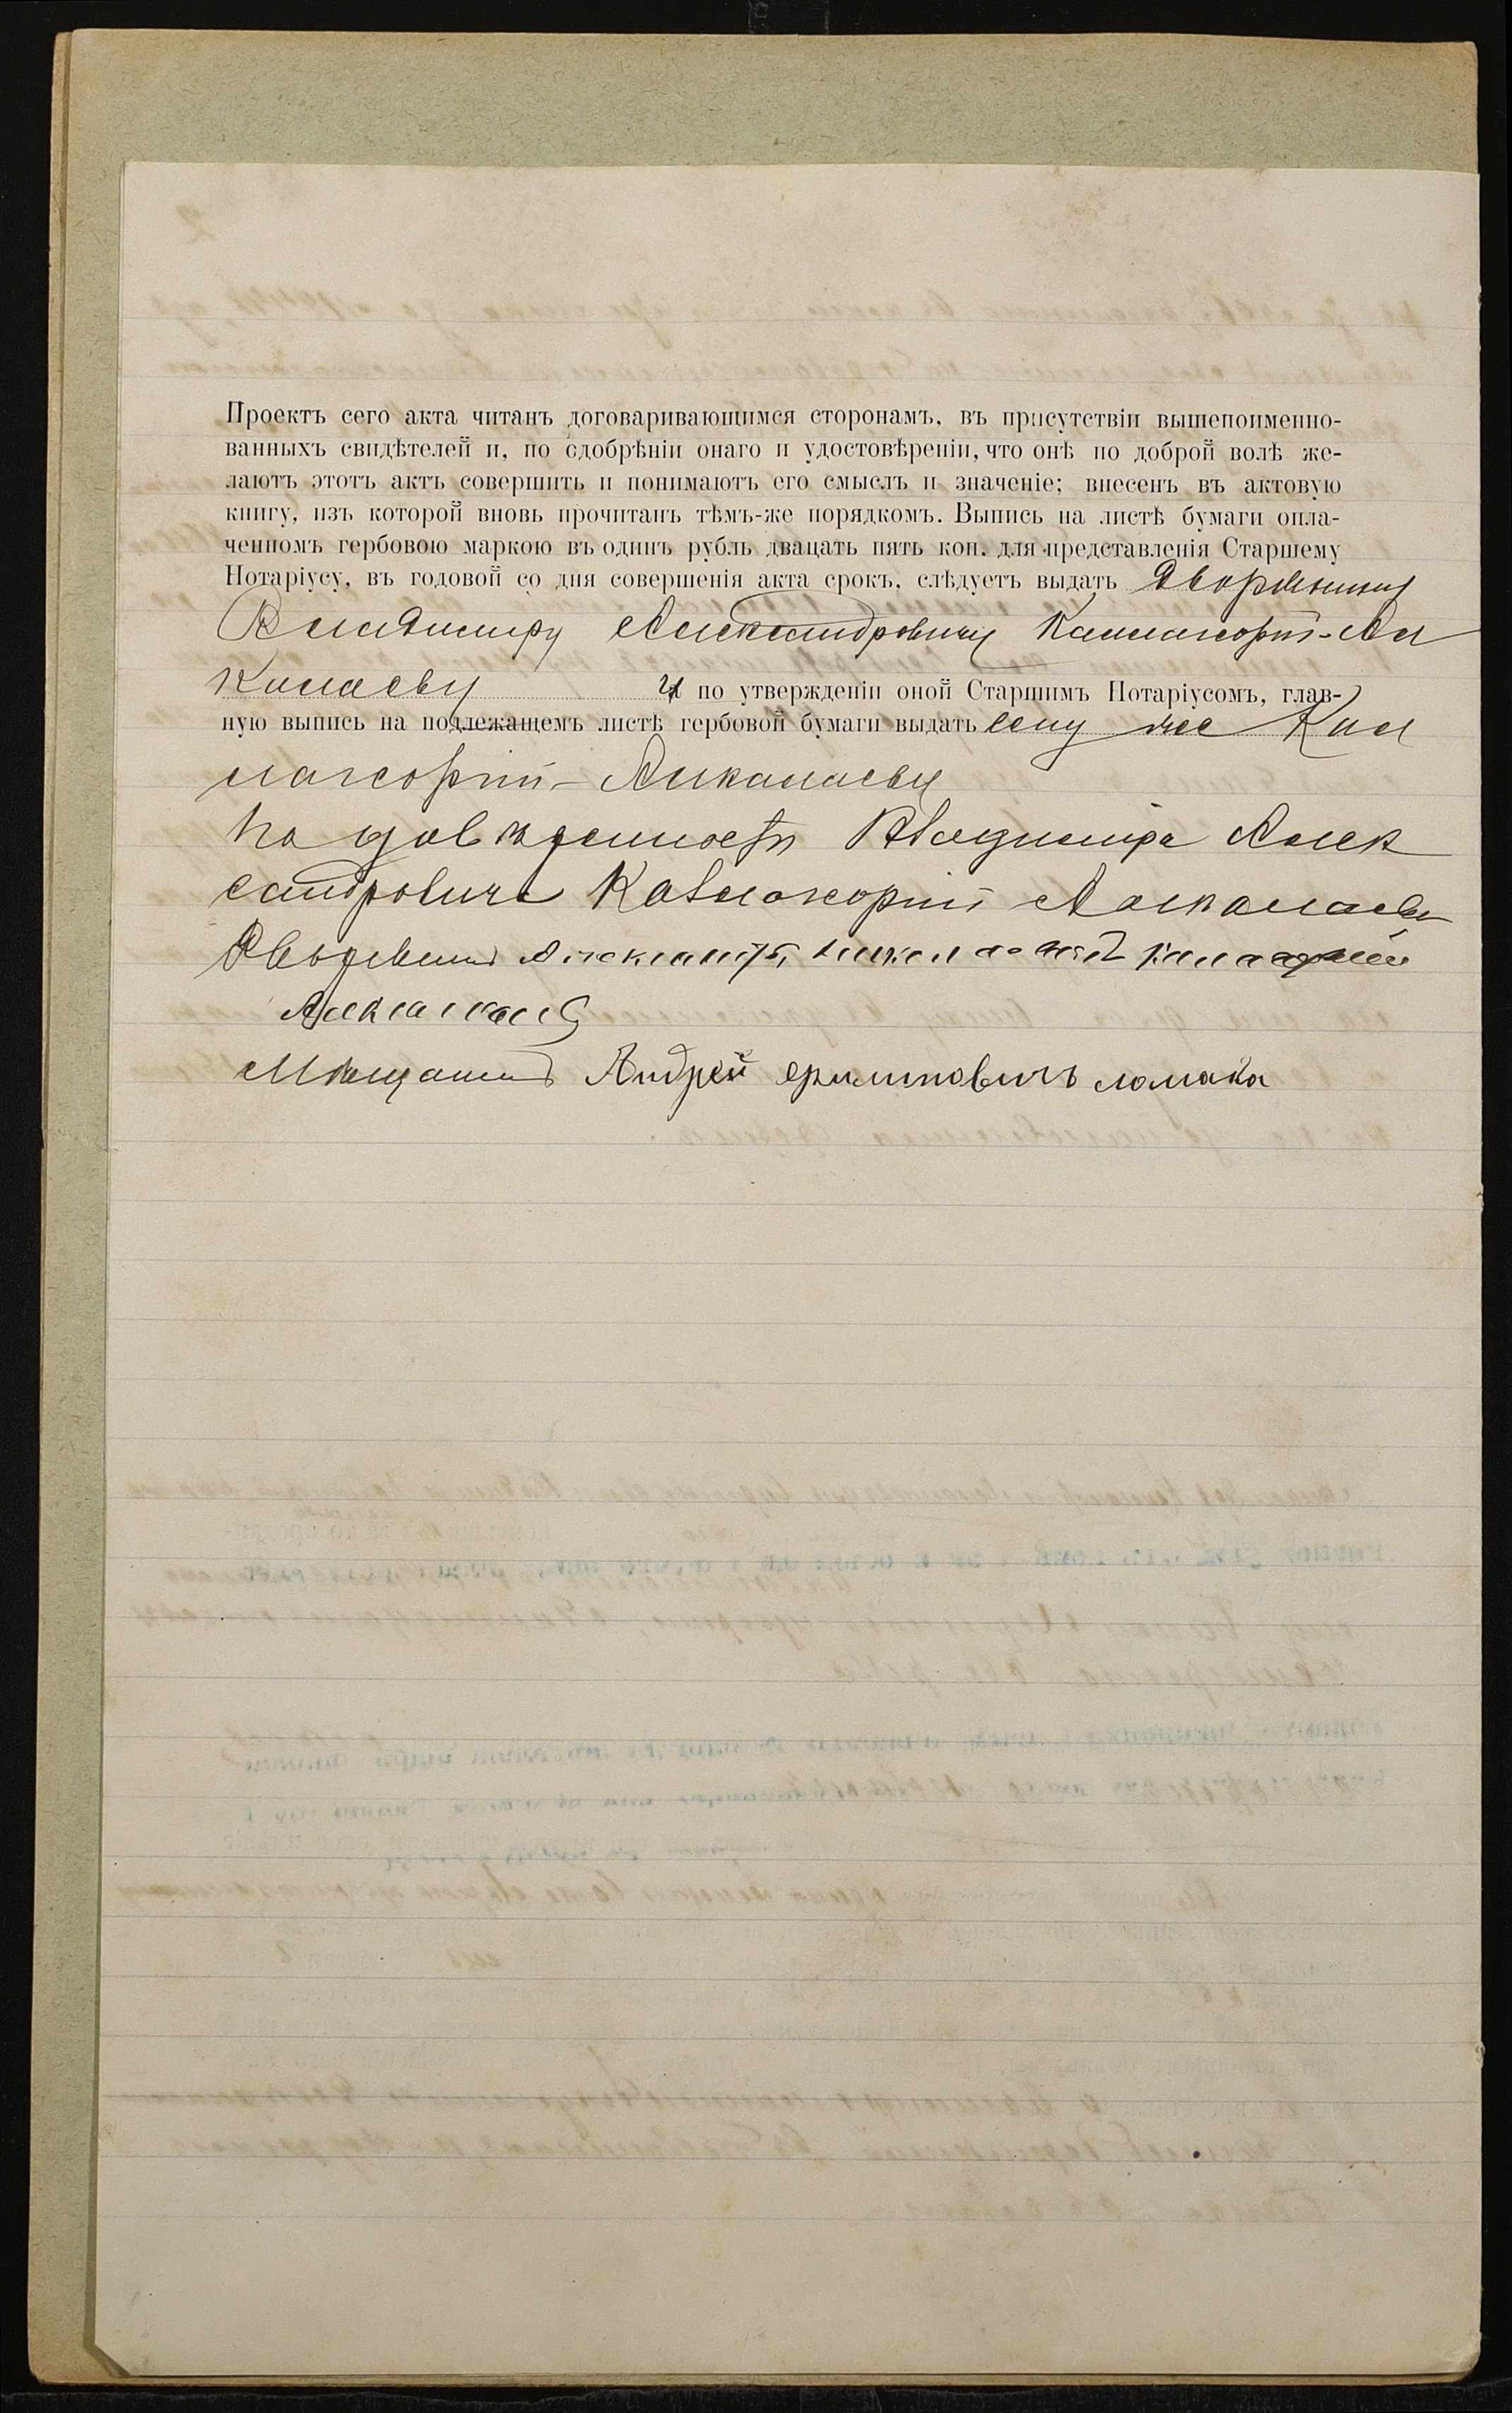 Проектъ сего акта читанъ договаривающимся сторонамъ, въ присутствіи вышепоименно-
ванныхъ свидѣтелей и, по одобрѣніи онаго и удостовѣреніи, что онѣ по доброй волѣ же-
лаютъ этотъ актъ совершить и понимаютъ его смыслъ и значеніе; внесенъ въ актовую
книгу, изъ которой вновь прочитанъ тѣмъ-же порядкомъ. Выпись на листѣ бумаги опла-
ченномъ гербовою маркою въ одинъ рубль двацать пять коп. для представленія Старшему
Нотаріусу, въ годовой со дня совершенія акта срокъ, слѣдуетъ выдать Дворянину
Владимиру Александровичу
и по утвержденіи оной Старшимъ Нотаріусомъ, глав-
ную выпись на подлежащемъ листѣ гербовой бумаги выдать ему же
По довѣренности Владиміра Алек
сандровича
Дворянинъ
Мѣщанинъ Андрей ломака